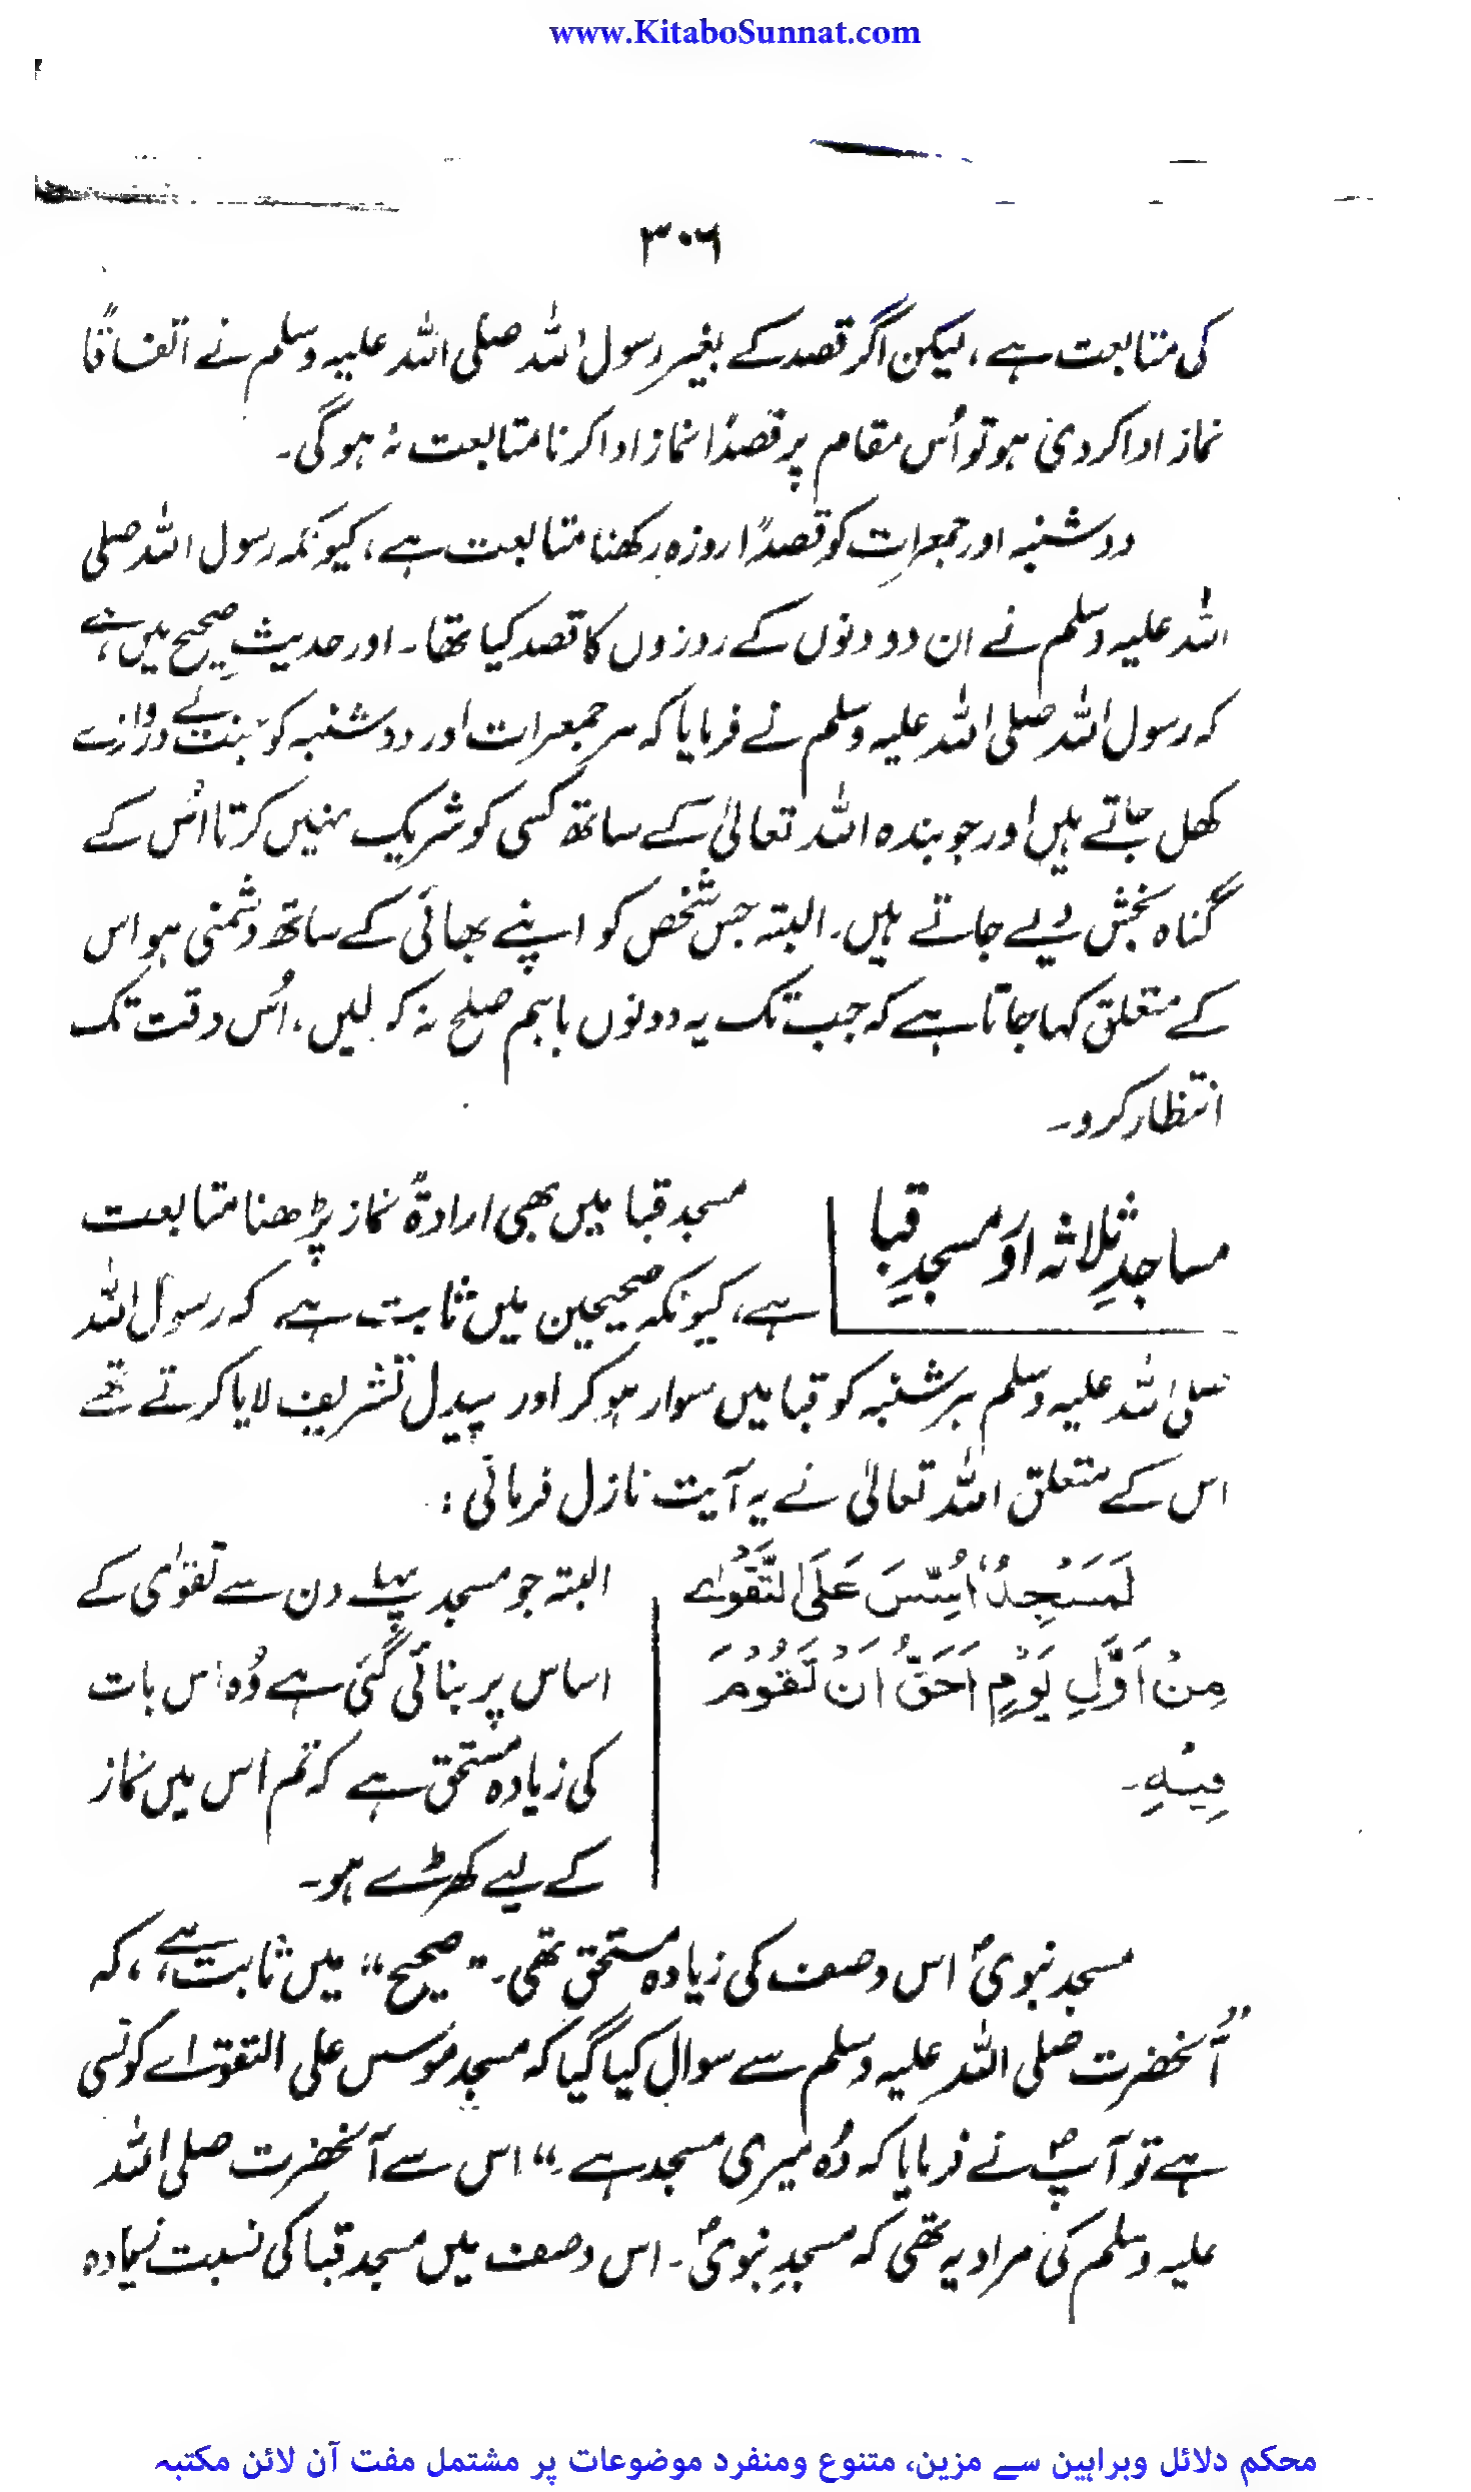 www.KitaboSunnat.com
۳۰۶
کی متابعت ہے، لیکن اگر قصد کے بغیر رسول اللہ صلی اللہ علیہ وسلم نے اتفاقاً
نماز ادا کر دی ہو تو اُس مقام پر قصداً نماز ادا کرنا متابعت نہ ہو گی۔
دوشنبہ اور جمعرات کو قصداً روزہ رکھنا متابعت ہے، کیونکہ رسول اللہ صلی
اللہ علیہ وسلم نے ان دو دنوں کے روزوں کا قصد کیا تھا۔ اور حدیثِ صحیح میں ہے
کہ رسول اللہ صلی اللہ علیہ وسلم نے فرمایا کہ ہر جمعرات اور دوشنبہ کو جنت کے دروازے
کھل جاتے ہیں اور جو بندہ اللہ تعالیٰ کے ساتھ کسی کو شریک نہیں کرتا اُس کے
گناہ بخش دیے جاتے ہیں۔ البتہ جس شخص کو اپنے بھائی کے ساتھ دشمنی ہو اس
کے متعلق کہا جاتا ہے کہ جب تک یہ دونوں باہم صلح نہ کر لیں، اُس وقت تک
انتظار کرو۔
مساجدِ ثلاثہ اور مسجدِ قبا
مسجد قبا میں بھی ارادۃً نماز پڑھنا متابعت
ہے، کیونکہ صحیحین میں ثابت ہے کہ رسول اللہ
صلی اللہ علیہ وسلم ہر شنبہ کو قبا میں سوار ہو کر اور پیدل تشریف لایا کرتے تھے
اس کے متعلق اللہ تعالیٰ نے یہ آیت نازل فرمائی :
لَمَسْجِدٌ اُسِّسَ عَلَی التَّقْوٰے
مِنْ اَوَّلِ یَوْمٍ اَحَقُّ اَنْ تَقُوْمَ
فِیْہِ۔
البتہ جو مسجد پہلے دن سے تقوٰی کے
اساس پر بنائی گئی ہے وُہ اس بات
کی زیادہ مستحق ہے کہ تم اس میں نماز
کے لیے کھڑے ہو۔
مسجد نبویؐ اس وصف کی زیادہ مستحق تھی۔ "صحیح" میں ثابت ہے، کہ
"آنحضرت صلی اللہ علیہ وسلم سے سوال کیا گیا کہ مسجد مؤسس علی التقوٰے کونسی
ہے تو آپؐ نے فرمایا کہ وُہ میری مسجد ہے۔" اس سے آنحضرت صلی اللہ
علیہ وسلم کی مراد یہ تھی کہ مسجدِ نبویؐ۔ اس وصف میں مسجد قبا کی نسبت زیادہ
محکم دلائل وبراہین سے مزین، متنوع ومنفرد موضوعات پر مشتمل مفت آن لائن مکتبہ